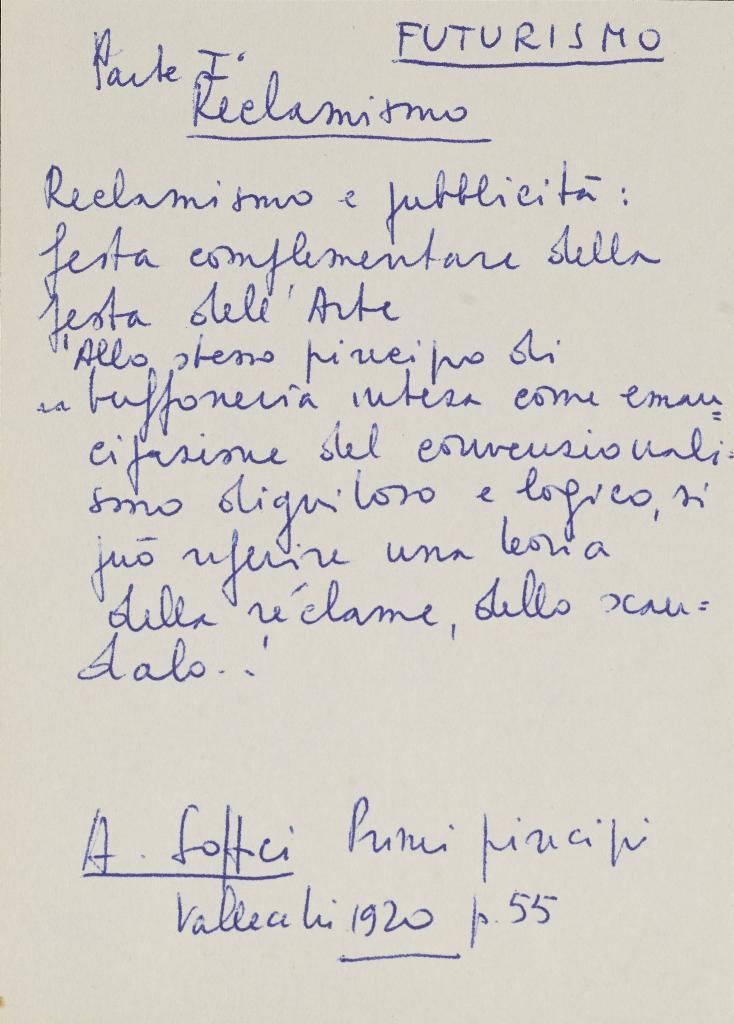 FUTURISMO
Parte I°
Reclamismo
Reclamismo e pubblicità:
festa complementare della
festa dell'Arte
"Allo stesso principio di
buffoneria intesa come eman=
cipazione del convenzionali=
smo e logico, si
può riferire una teoria
della réclame, dello scan=
dalo..."
A. Soffici Primi principi
Vallecchi 1920 p. 55